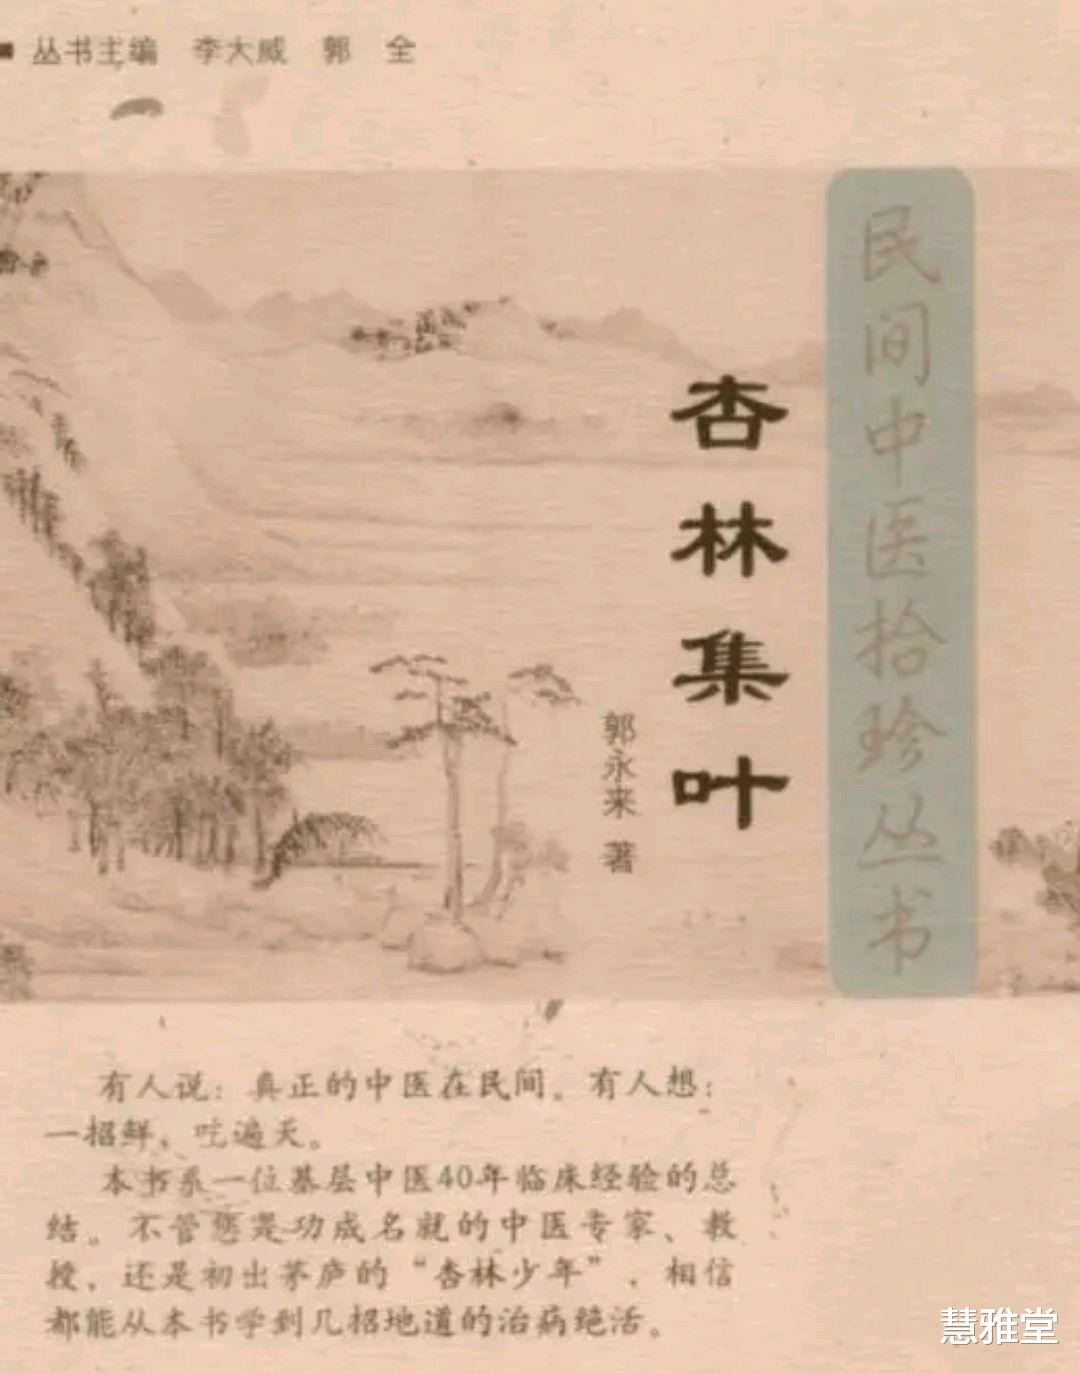 丛书主编 李大威 郭 全
民间中医拾珍丛书
杏林集叶
郭永来 著
有人说：真正的中医在民间。有人想：
一招鲜，吃遍天。
本书系一位基层中医40年临床经验的总
结。不管您是功成名就的中医专家、教
授，还是初出茅庐的“杏林少年”，相信
都能从本书学到几招地道的治病绝活。
慧雅堂